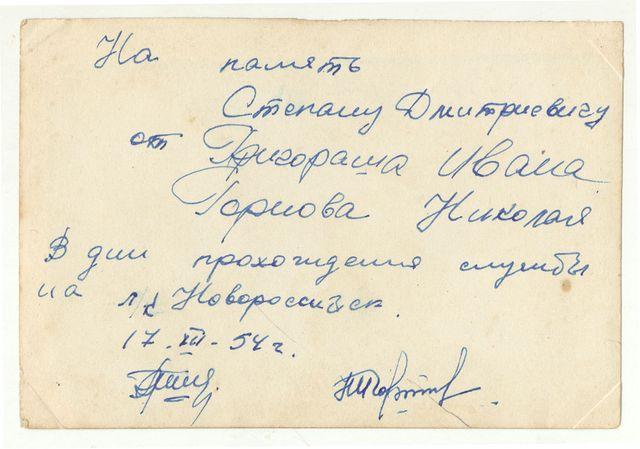 На память
Степану Дмитриевичу
от Григораша Ивана
Горнова Николая
В дни прохождения службы
на л/к Новороссийск.
17. XII - 54 г.